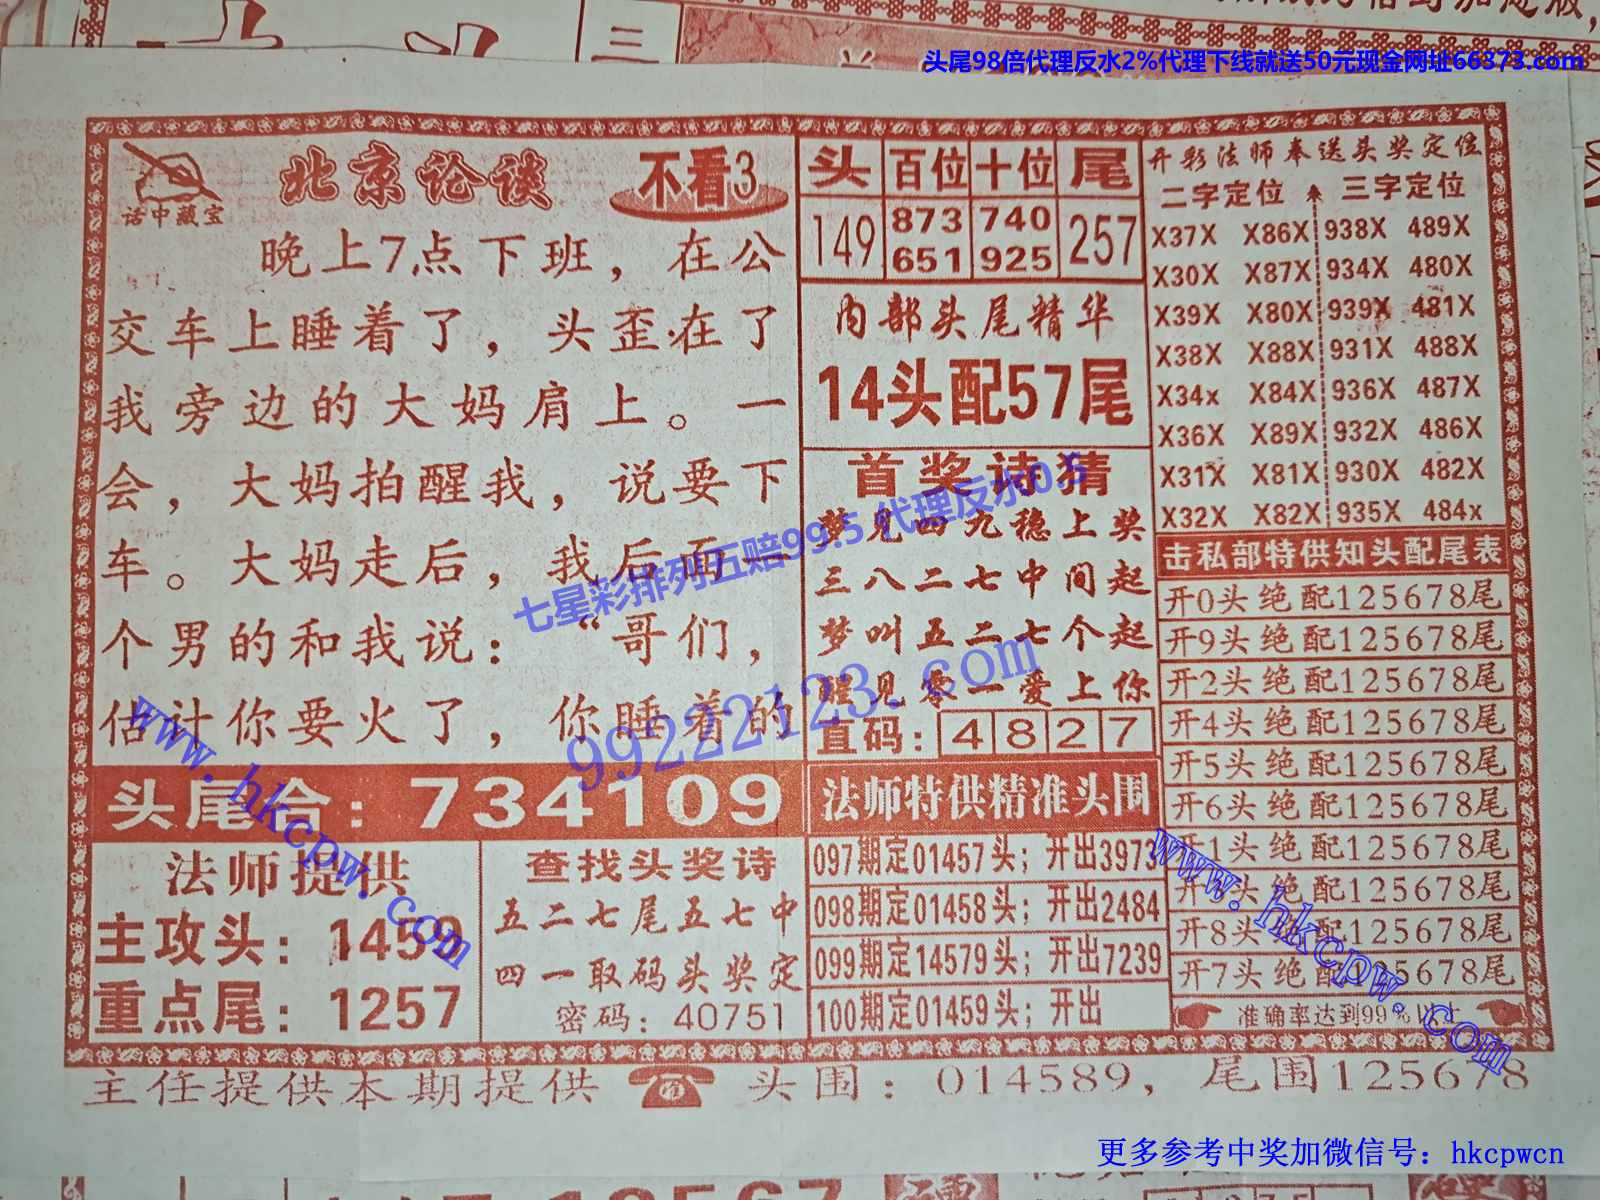 头尾98倍代理反水2%代理下线就送50元现金网址66373.com
三
话中藏宝
北京论谈
不看3
晚上7点下班，在公
交车上睡着了，头歪在了
我旁边的大妈肩上。一
会，大妈拍醒我，说要下
车。大妈走后，我后面一
个男的和我说：“哥们，
估计你要火了，你睡着的
头尾合：734109
法师提供
主攻头：1459
重点尾：1257
查找头奖诗
五二七尾五七中
四一取码头奖定
密码：40751
头 百位 十位 尾
149 873 740 257
651 925
内部头尾精华
14头配57尾
首奖诗猜
梦见四九稳上奖
三八二七中间起
梦叫五二七个起
醒见零一爱上你
直码：4827
法师特供精准头围
097期定01457头；开出3973
098期定01458头；开出2484
099期定14579头；开出7239
100期定01459头；开出
开彩法师奉送头奖定位
二字定位 三字定位
X37X X86X 938X 489X
X30X X87X 934X 480X
X39X X80X 939X 481X
X38X X88X 931X 488X
X34x X84X 936X 487X
X36X X89X 932X 486X
X31X X81X 930X 482X
X32X X82X 935X 484x
击私部特供知头配尾表
开0头绝配125678尾
开9头绝配125678尾
开2头绝配125678尾
开4头绝配125678尾
开5头绝配125678尾
开6头绝配125678尾
开1头绝配125678尾
开 头绝配125678尾
开8头绝配125678尾
开7头绝配125678尾
准确率达到99%以上
主任提供本期提供 头围：014589，尾围125678
七星彩排列五赔99.5 代理反水0.5
99222123.com
www.hkcpw.com
www.hkcpw.com
更多参考中奖加微信号：hkcpwcn